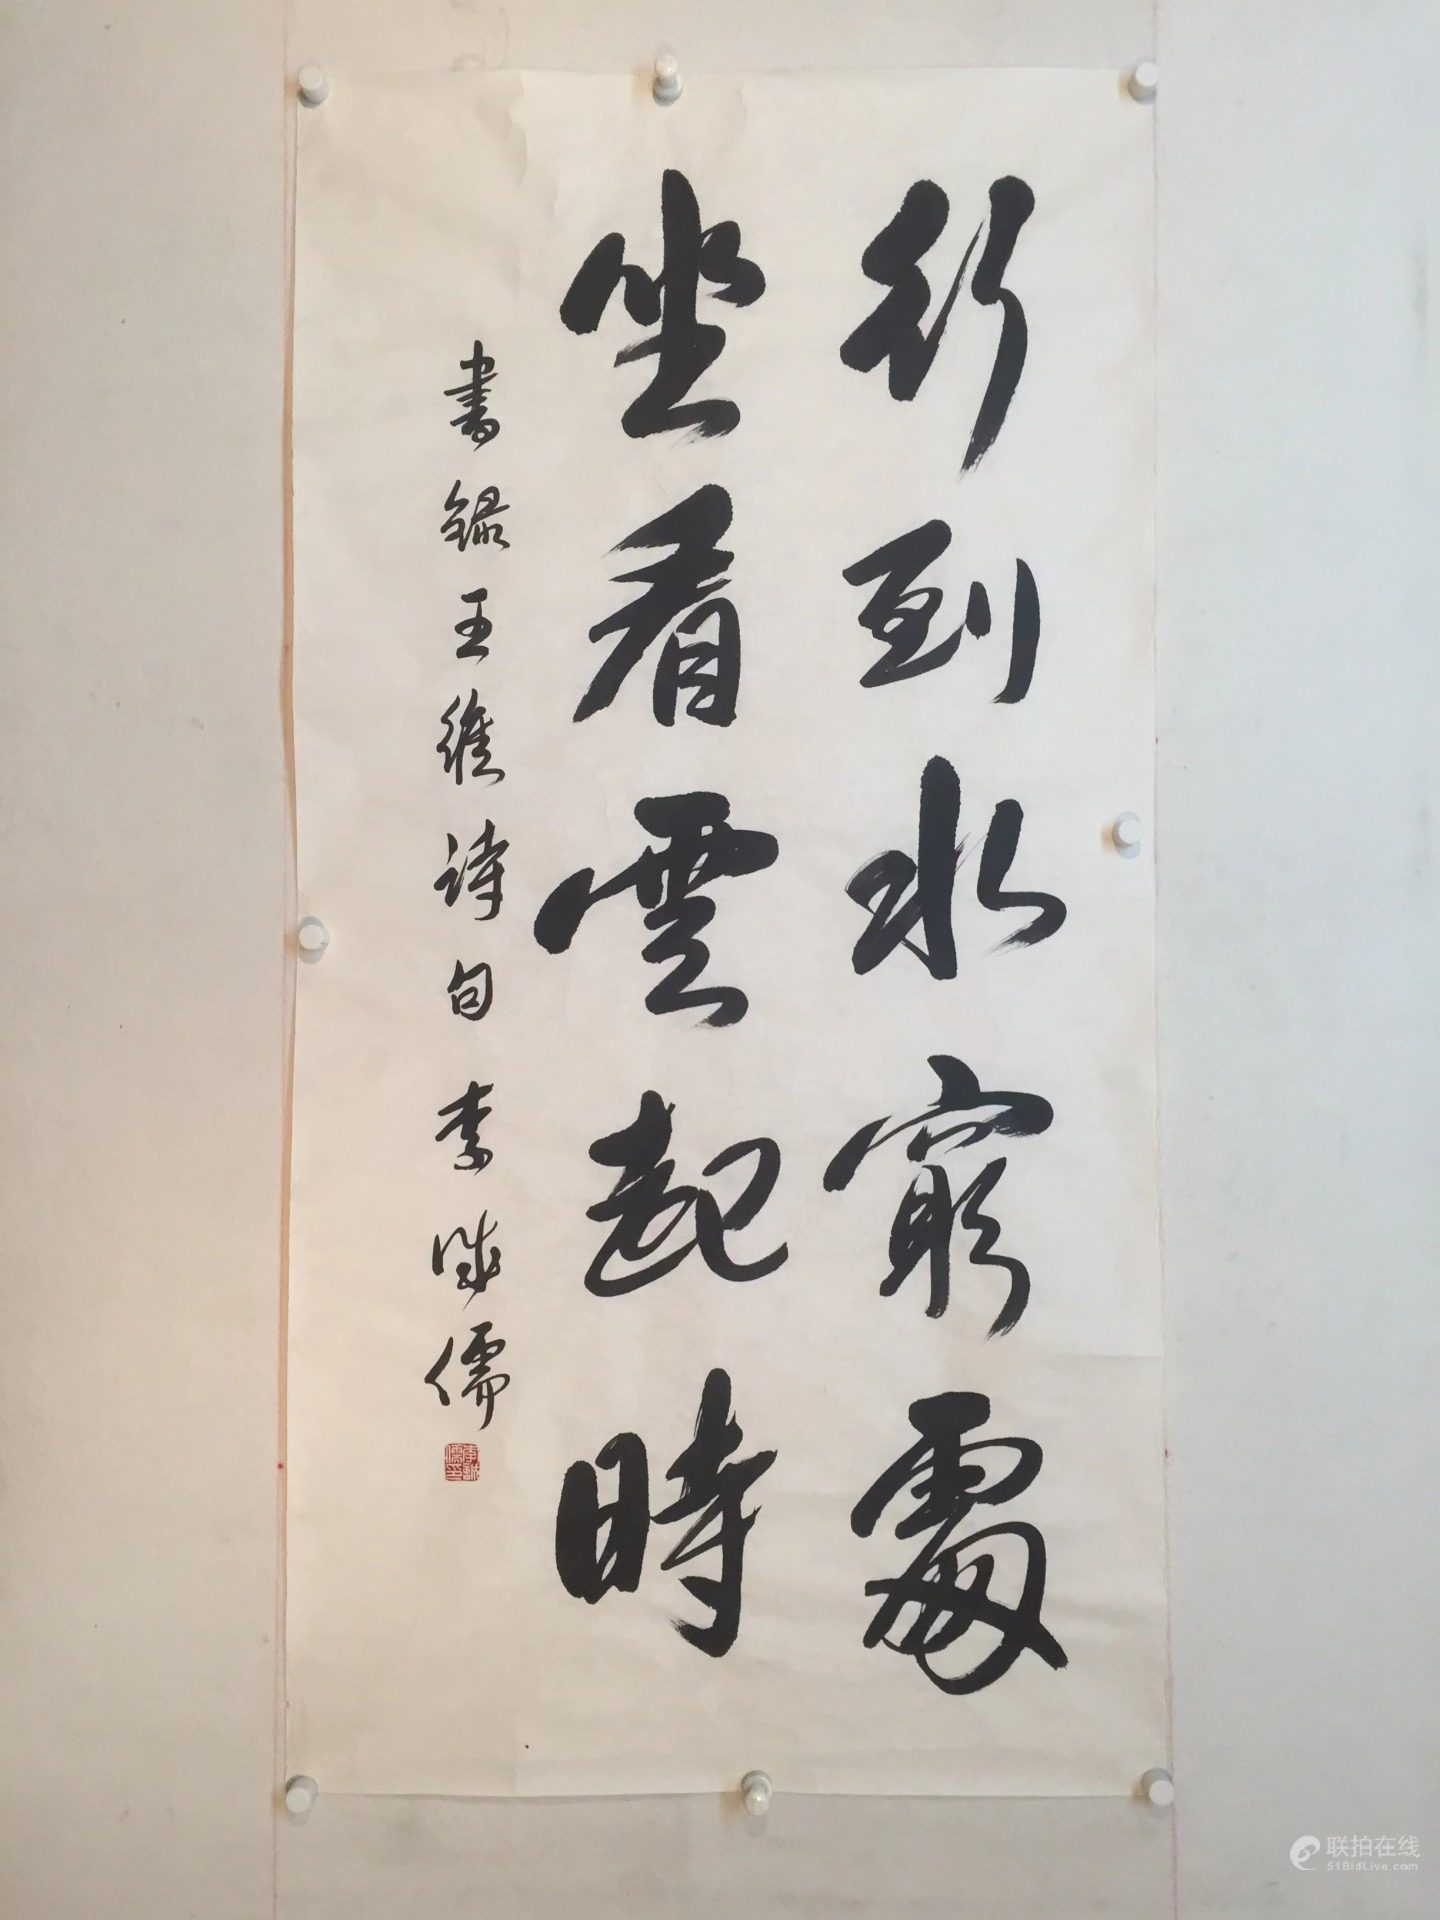 行到水窮處
坐看雲起時
書録王維詩句 李誠儒
李誠儒印
联拍在线
51BidLive.com